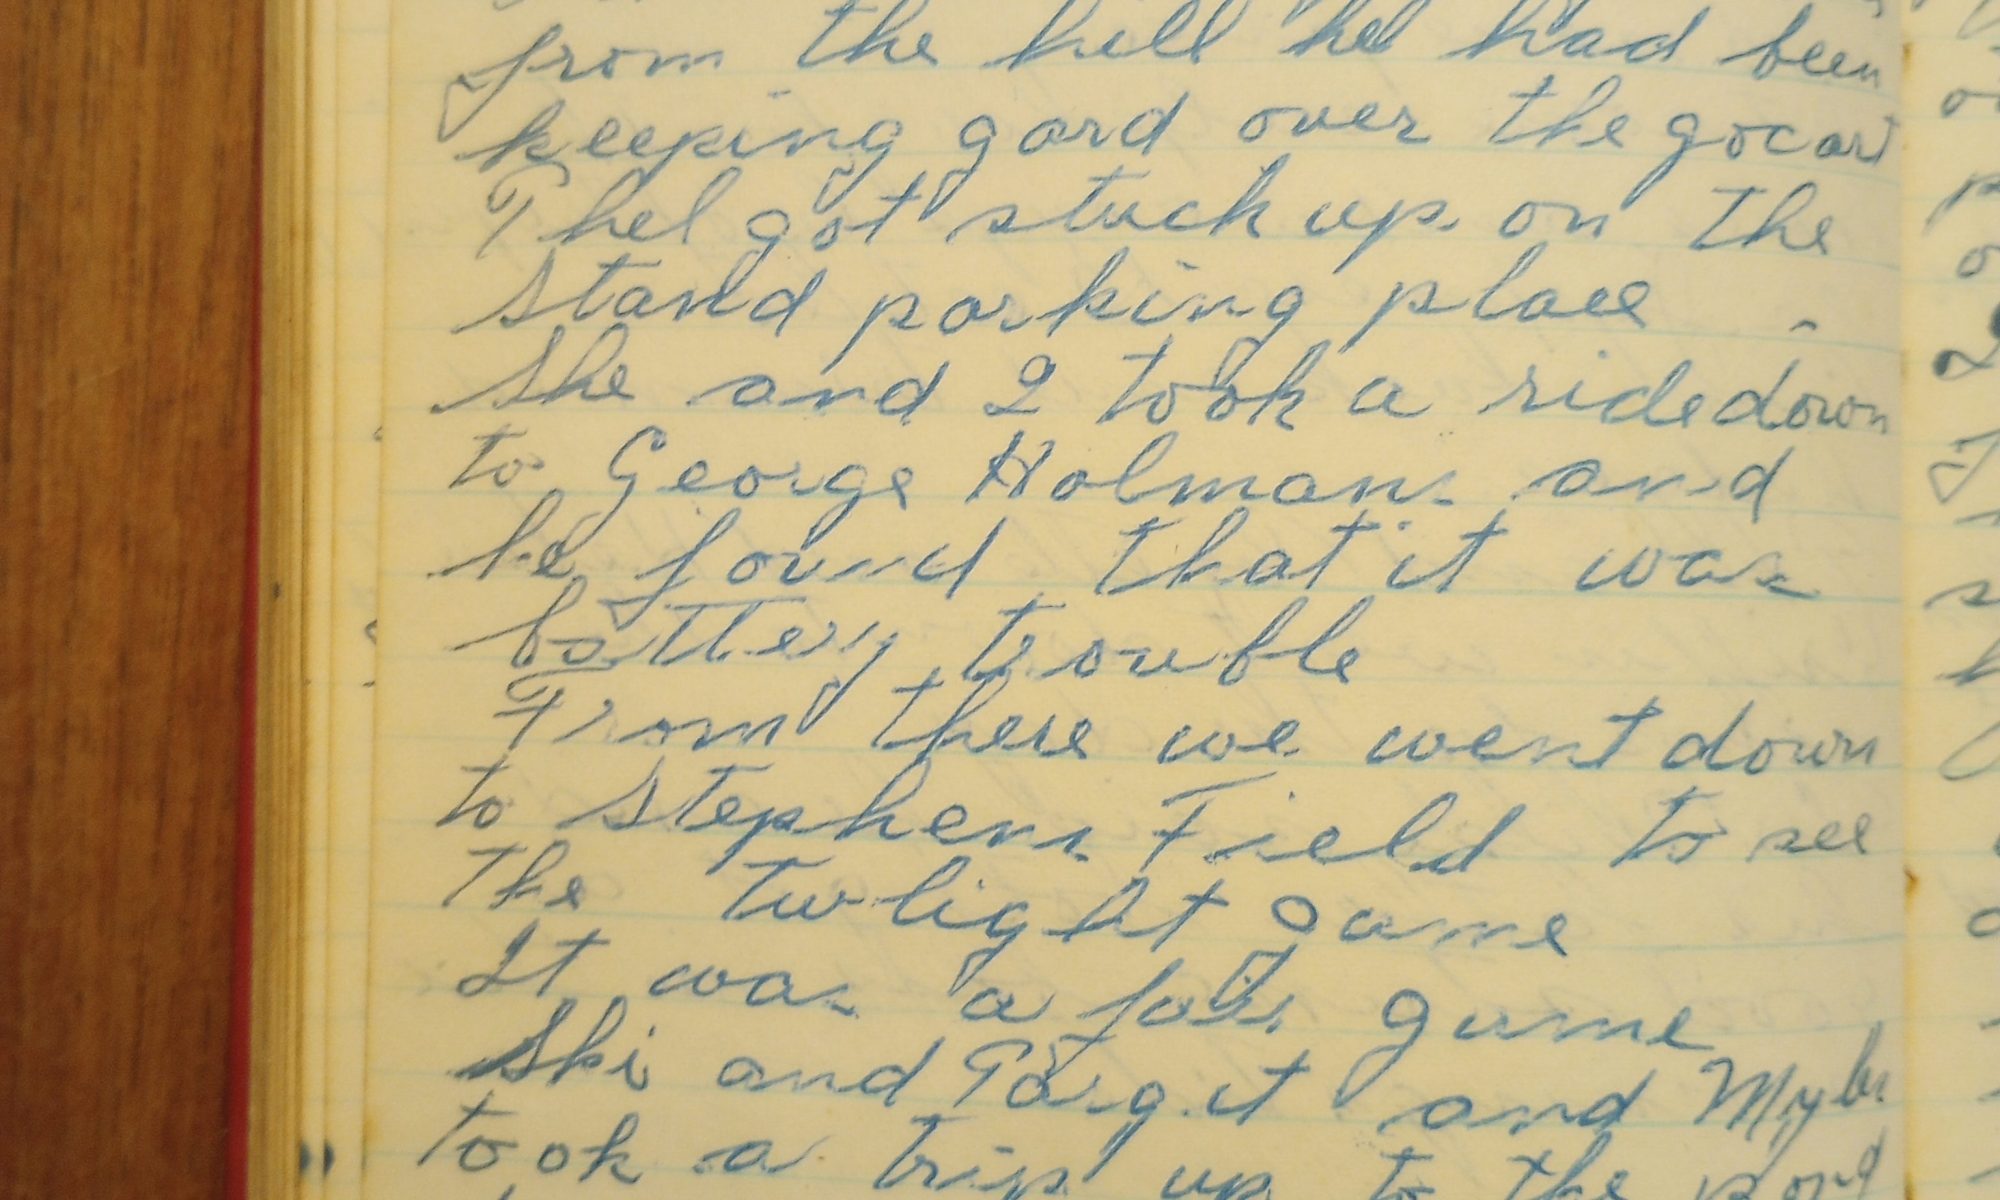 from the hill he had been
keeping gard over the gocart
Thel got stuck up on the
stand parking place
She and I took a ride down
to George Holmans and
he found that it was
battery trouble
From there we went down
to Stephens Field to see
the twlight game
It was a game
Ski and Targit and
took a trip up to the pond